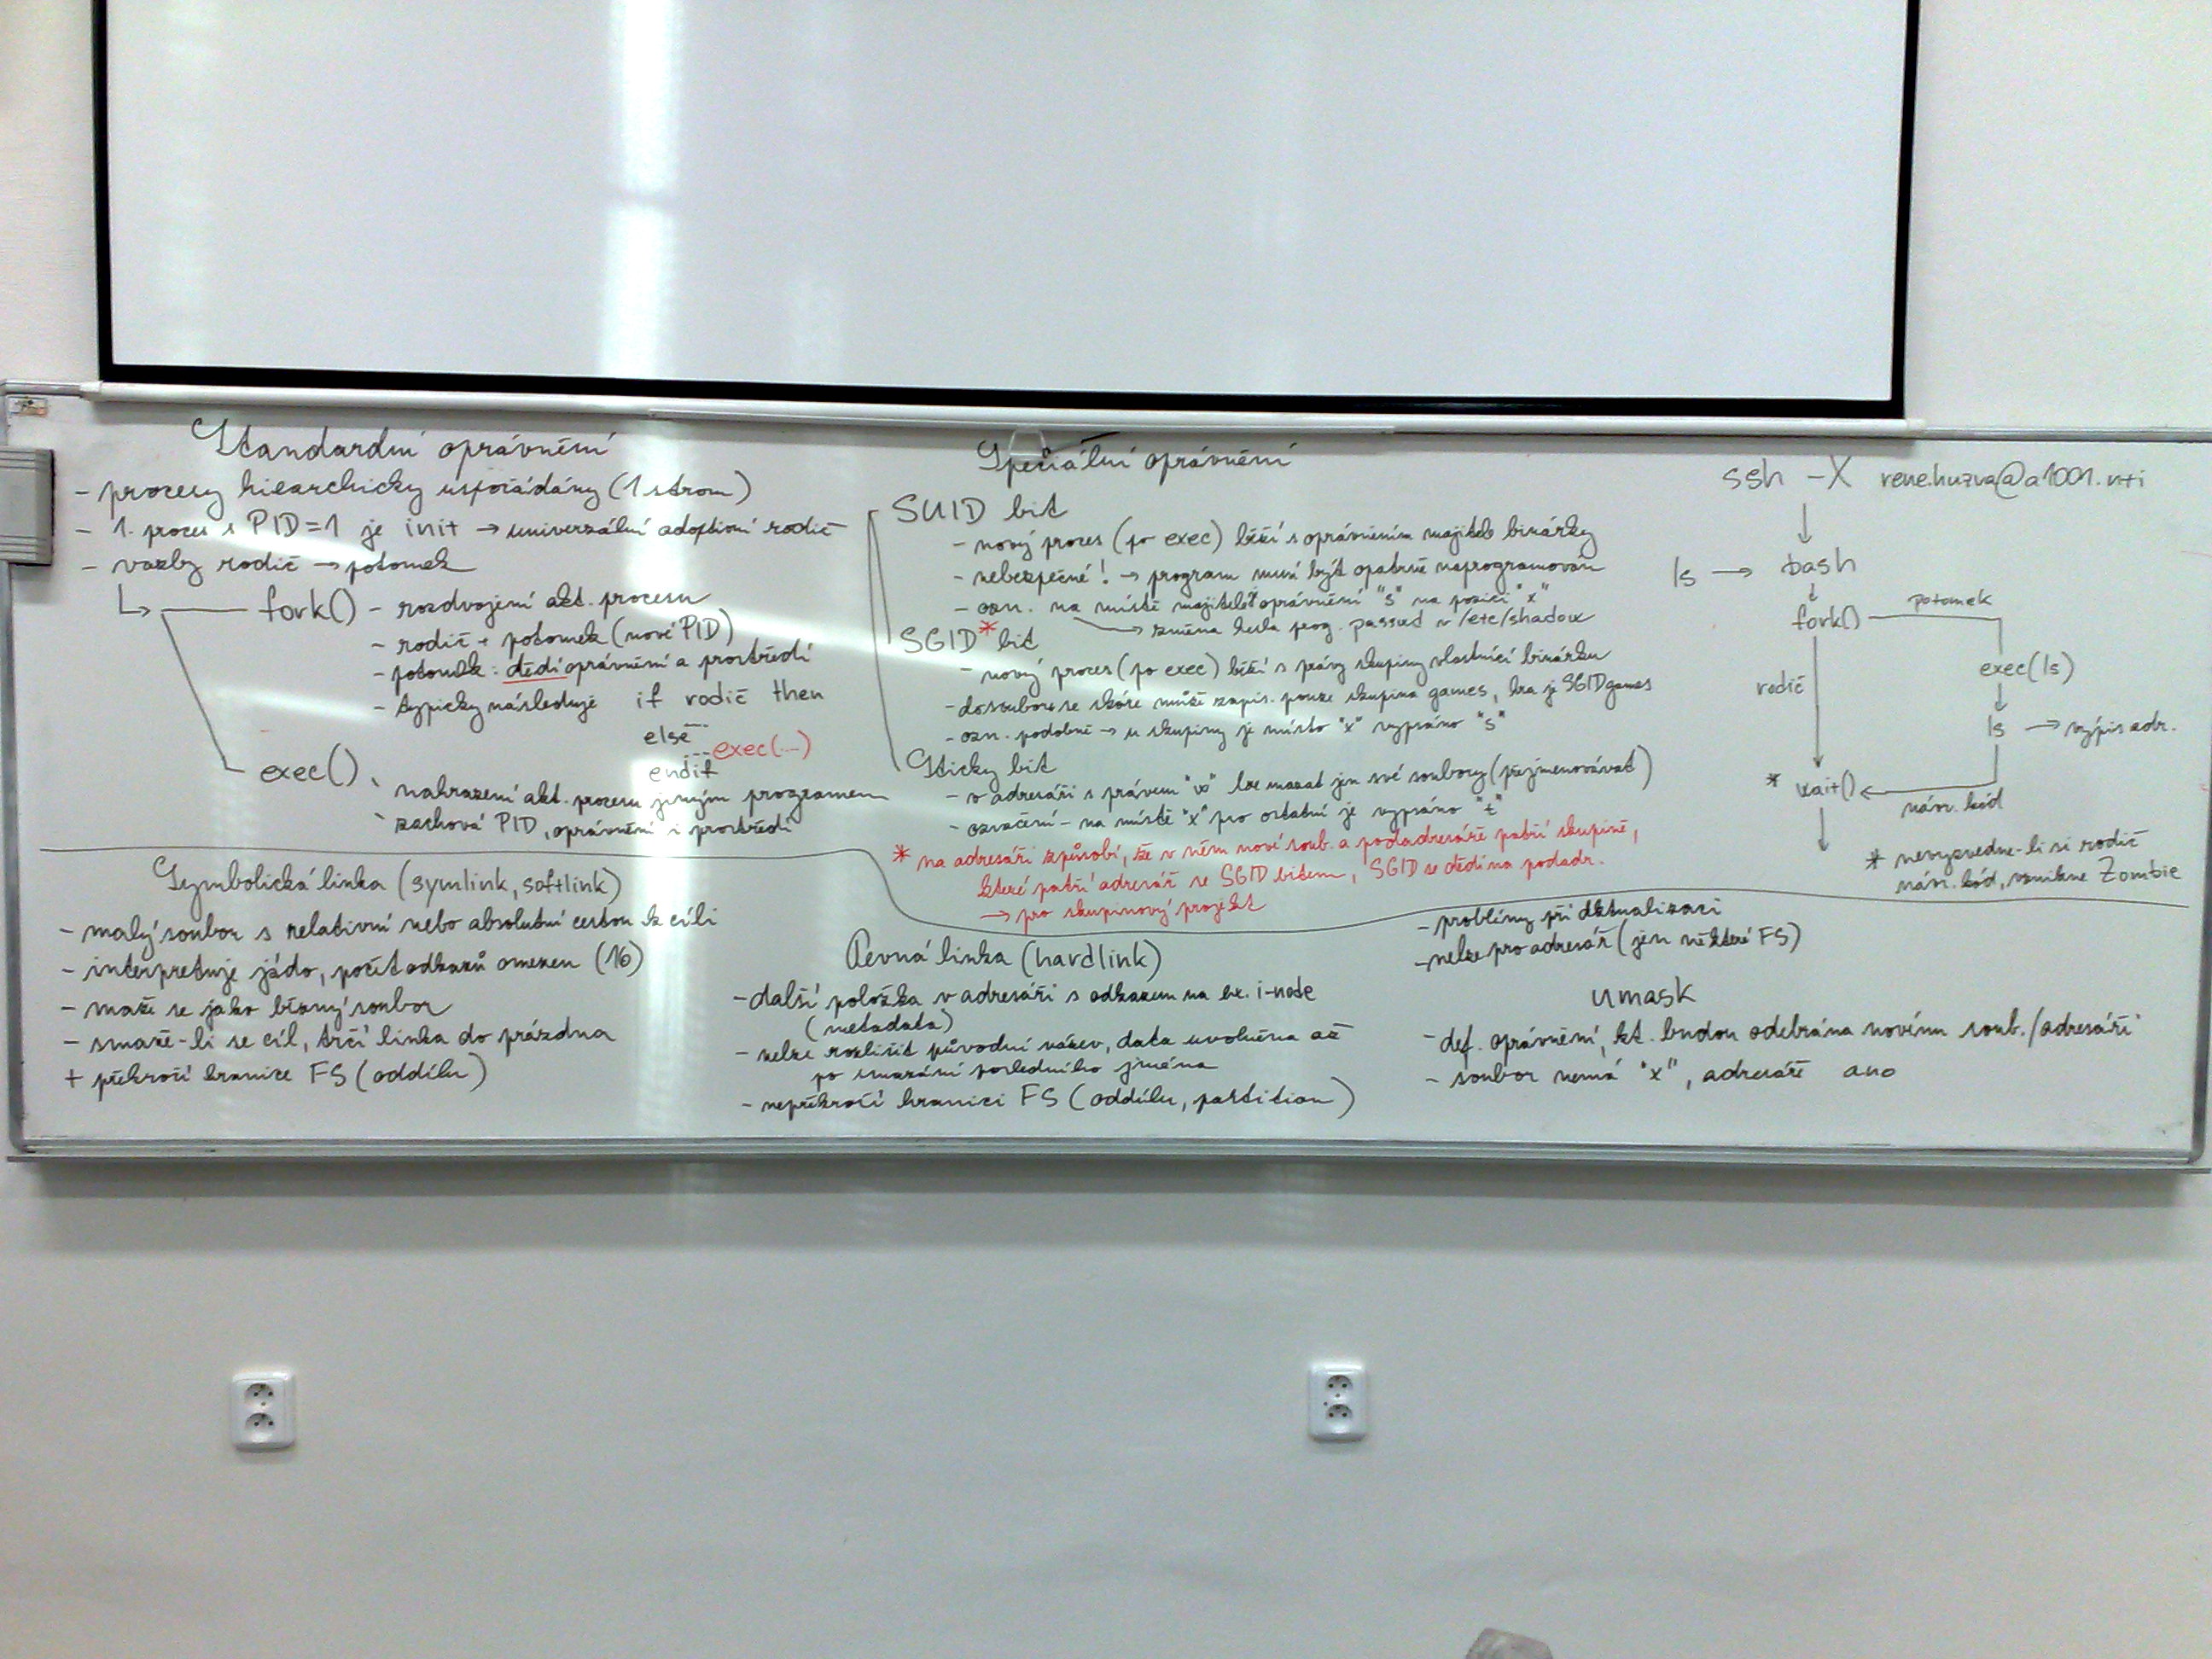 Standardní oprávnění
- procesy hiearchicky uspořádány (1 strom)
- 1. proces s PID=1 je init → univerzální adoptivní rodič
- vazby rodič → potomek
fork() - rozdvojení akt. procesu
- rodič + potomek (nové PID)
- potomek: dědí oprávnění a prostředí
- typicky následuje if rodič then
else ...
... exec(...)
endif
exec() - nahrazení akt. procesu jiným programem
- zachová PID, oprávnění i prostředí
Symbolická linka (symlink, softlink)
- malý soubor s relativní nebo absolutní cestou k cíli
- interpretuje jádo, počít odkazů omezen (16)
- maže se jako běžný soubor
- smaže-li se cíl, trčí linka do prázdna
+ překročí hranice FS (oddílu)
Speciální oprávnění
SUID bit
- nový proces (po exec) běží s oprávněním majitele binárky
- nebezpečné! → program musí být opatrně naprogramován
- ozn. na místě majitele oprávnění "s" na pozici "x"
→ změna hesla prog. passwd v /etc/shadow
SGID* bit
- nový proces (po exec) běží s právy skupiny vlastnící binárku
- do souboru se skóre může zapis. pouze skupina games, hra je SGID games
- ozn. podobně → u skupiny je místo "x" vypsáno "s"
Sticky bit
- v adresáři s právem "w" lze mazat jen své soubory (přejmenovávat)
- označení - na místě "x" pro ostatní je vypsáno "t"
* na adresáři způsobí, že v něm nové soub. a podadresáře patří skupině,
které patří adresář se SGID bitem, SGID se dědí na podadr.
→ pro skupinový projekt
Pevná linka (hardlink)
- další položka v adresáři s odkazem na ex. i-node
(metadata)
- nelze rozlišit původní název, data uvolněna až
po smazání posledního jména
- nepřekročí hranici FS (oddílu, partition)
- problémy při aktualizaci
- nelze pro adresář (jen některé FS)
umask
- def. oprávnění, kt. budou odebrána novému soub./adresáři
- soubor nemá "x", adresáře ano
ssh -X rene.huzva@a1001.nti
ls → bash
fork() potomek
exec(ls)
rodič
ls → výpis adr.
* wait()
náv. kód
* nevyzvedne-li si rodič
náv. kód, vznikne Zombie